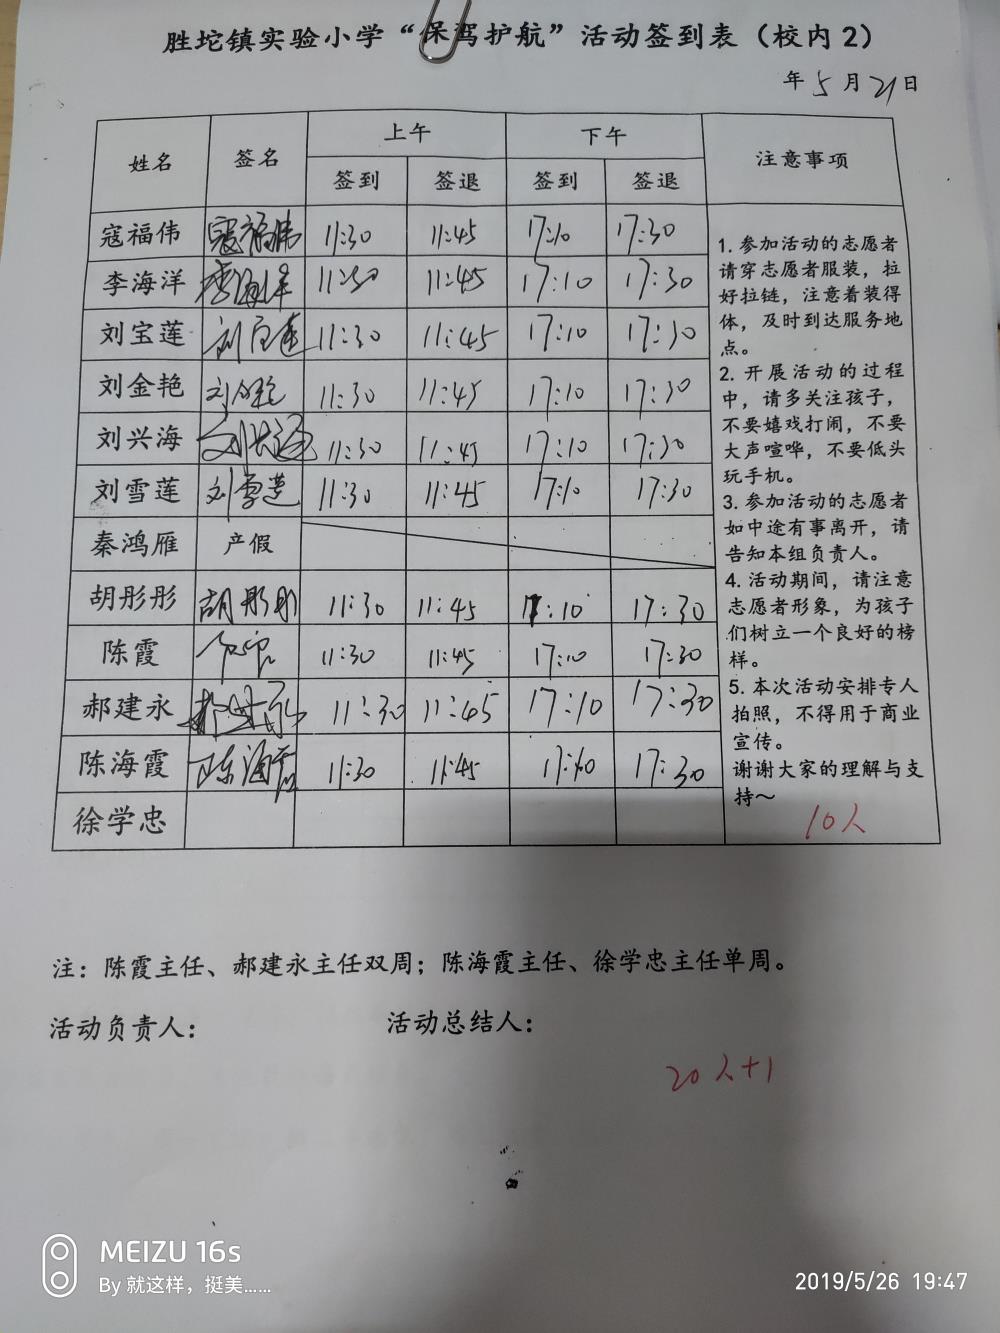 胜坨镇实验小学“保驾护航”活动签到表（校内2）
年5月21日
姓名 签名 上午 下午 注意事项
签到 签退 签到 签退
寇福伟 寇福伟 11:30 11:45 17:10 17:30
李海洋 李海洋 11:30 11:45 17:10 17:30
刘宝莲 刘宝莲 11:30 11:45 17:10 17:30
刘金艳 刘金艳 11:30 11:45 17:10 17:30
刘兴海 11:30 11:45 17:10 17:30
刘雪莲 刘雪莲 11:30 11:45 17:10 17:30
秦鸿雁 产假
胡彤彤 胡彤彤 11:30 11:45 17:10 17:30
陈霞 11:30 11:45 17:10 17:30
郝建永 郝建永 11:30 11:45 17:10 17:30
陈海霞 陈海霞 11:30 11:45 17:10 17:30
徐学忠
1. 参加活动的志愿者
请穿志愿者服装，拉
好拉链，注意着装得
体，及时到达服务地
点。
2. 开展活动的过程
中，请多关注孩子，
不要嬉戏打闹，不要
大声喧哗，不要低头
玩手机。
3. 参加活动的志愿者
如中途有事离开，请
告知本组负责人。
4. 活动期间，请注意
志愿者形象，为孩子
们树立一个良好的榜
样。
5. 本次活动安排专人
拍照，不得用于商业
宣传。
谢谢大家的理解与支
持～
10人
注：陈霞主任、郝建永主任双周；陈海霞主任、徐学忠主任单周。
活动负责人： 活动总结人：
20人+1
MEIZU 16s
By 就这样，挺美......
2019/5/26 19:47